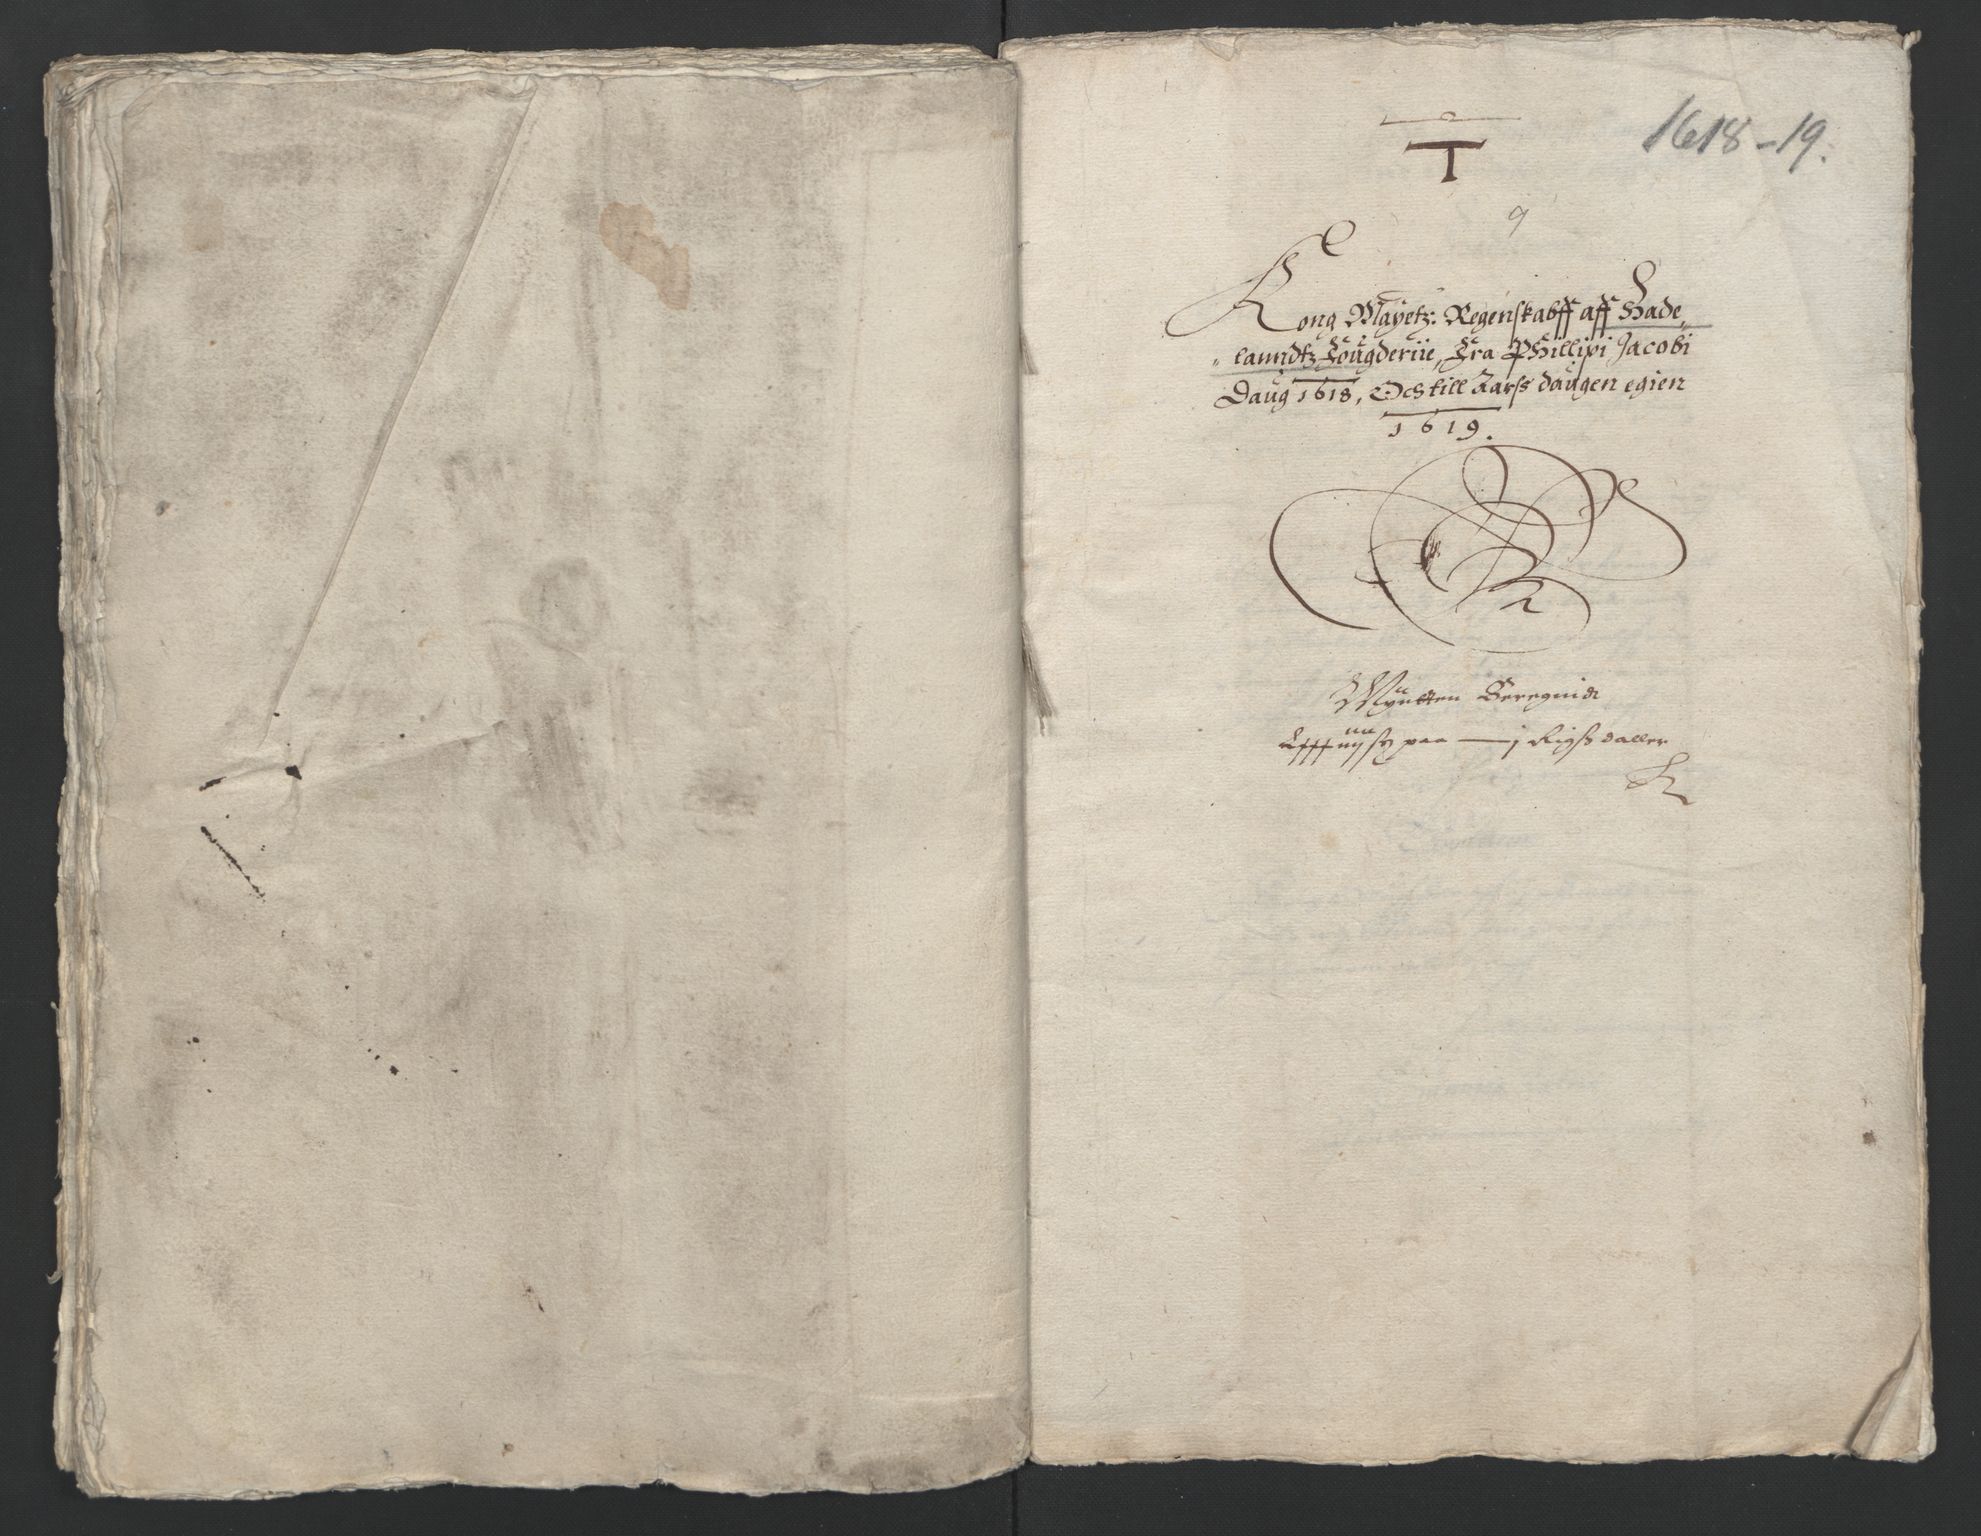 1618-19.
1
9
Kong Mayetz: Regenskabff aff Hade„
„lanndtz Fougderiie, Fra Phillipi Jacobi
Daug 1618, Och till Aarss daugen egien
1619.
Myntten Beregnidt
paa — j Rigss daller